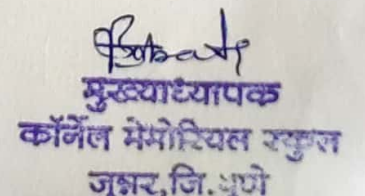 मुख्याध्यापक
कॉर्नेल मेमोरियल स्कुल
जुन्नर, जि. पुणे